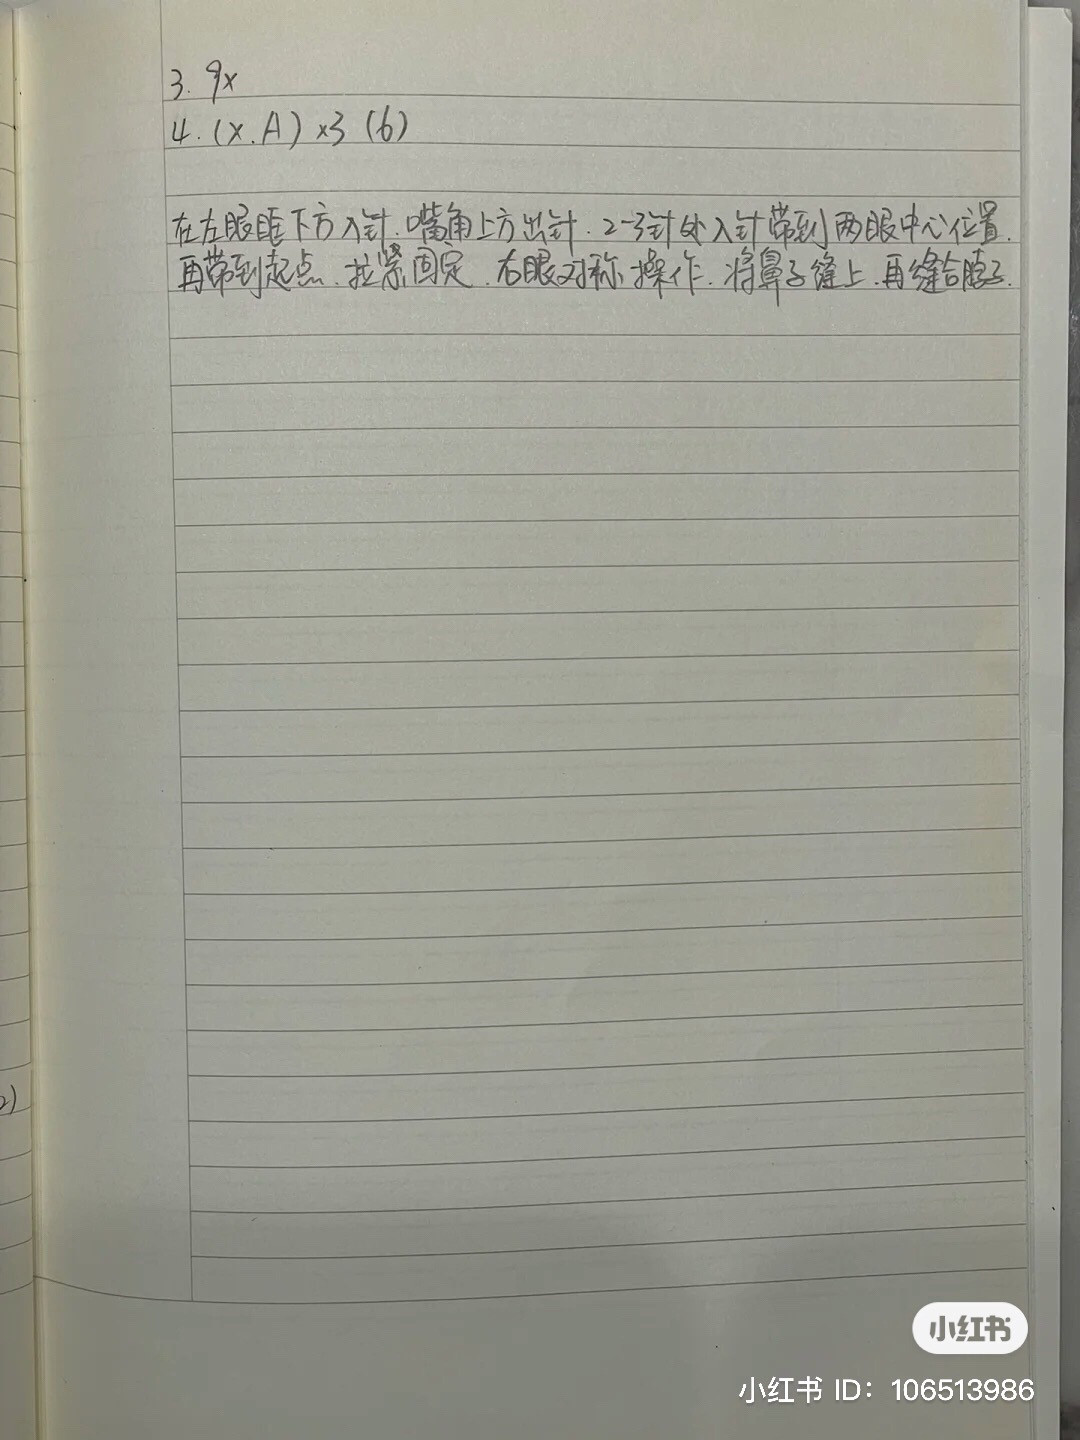 3. 9x
4. (x.A)×3 (6)
在左眼眶下方入针.嘴角上方出针.2-3针处入针带到两眼中心位置.
再带到起点.拉紧固定.右眼对称操作.将鼻子缝上.再缝合脖子.
2)
小红书
小红书 ID: 106513986